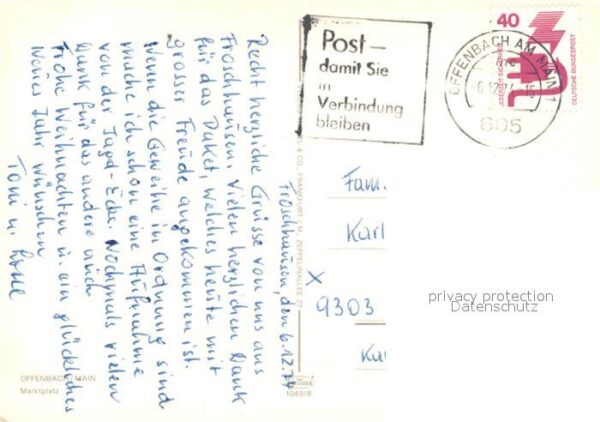 Froschhausen, den 6.12.74
Recht herzliche Grüsse von uns aus
Froschhausen. Vielen herzlichen Dank
für das Paket, welches heute mit
grosser Freude angekommen ist.
Wenn die Geweihe in Ordnung sind
mache ich schon eine Aufnahme
von der Jagd-Ecke. Nochmals vielen
Dank für das andere auch
Frohe Weihnachten u. ein glückliches
neues Jahr wünschen
Toni u.
OFFENBACH/MAIN
Marktplatz
& CO., FRANKFURT/M., ZEPPELINALLEE 27
1049/8
Post –
damit Sie
in
Verbindung
bleiben
OFFENBACH AM MAIN 1
605
40
DEUTSCHE BUNDESPOST
Fam.
Karl
X
9303
privacy protection
Datenschutz